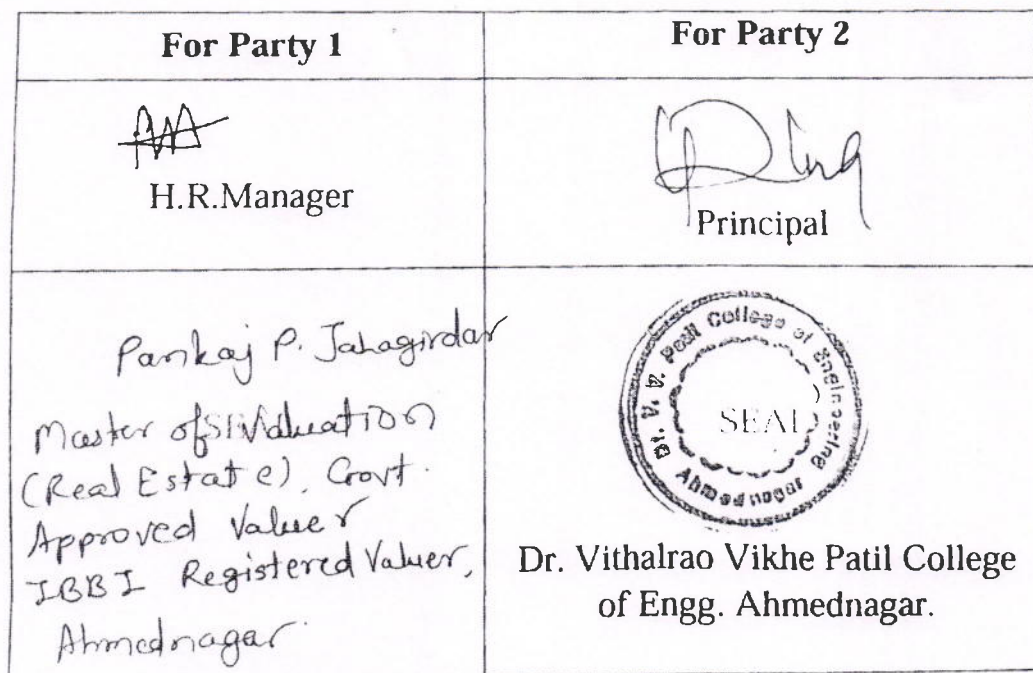 For Party 1
For Party 2
H.R.Manager
Principal
Pankaj P. Jahagirdar
Master of Valuation
(Real Estate), Govt.
Approved Valuer
IBBI Registered Valuer,
Ahmednagar
Dr. V. V. Patil College of Engineering
Ahmednagar
SEAL
Dr. Vithalrao Vikhe Patil College
of Engg. Ahmednagar.